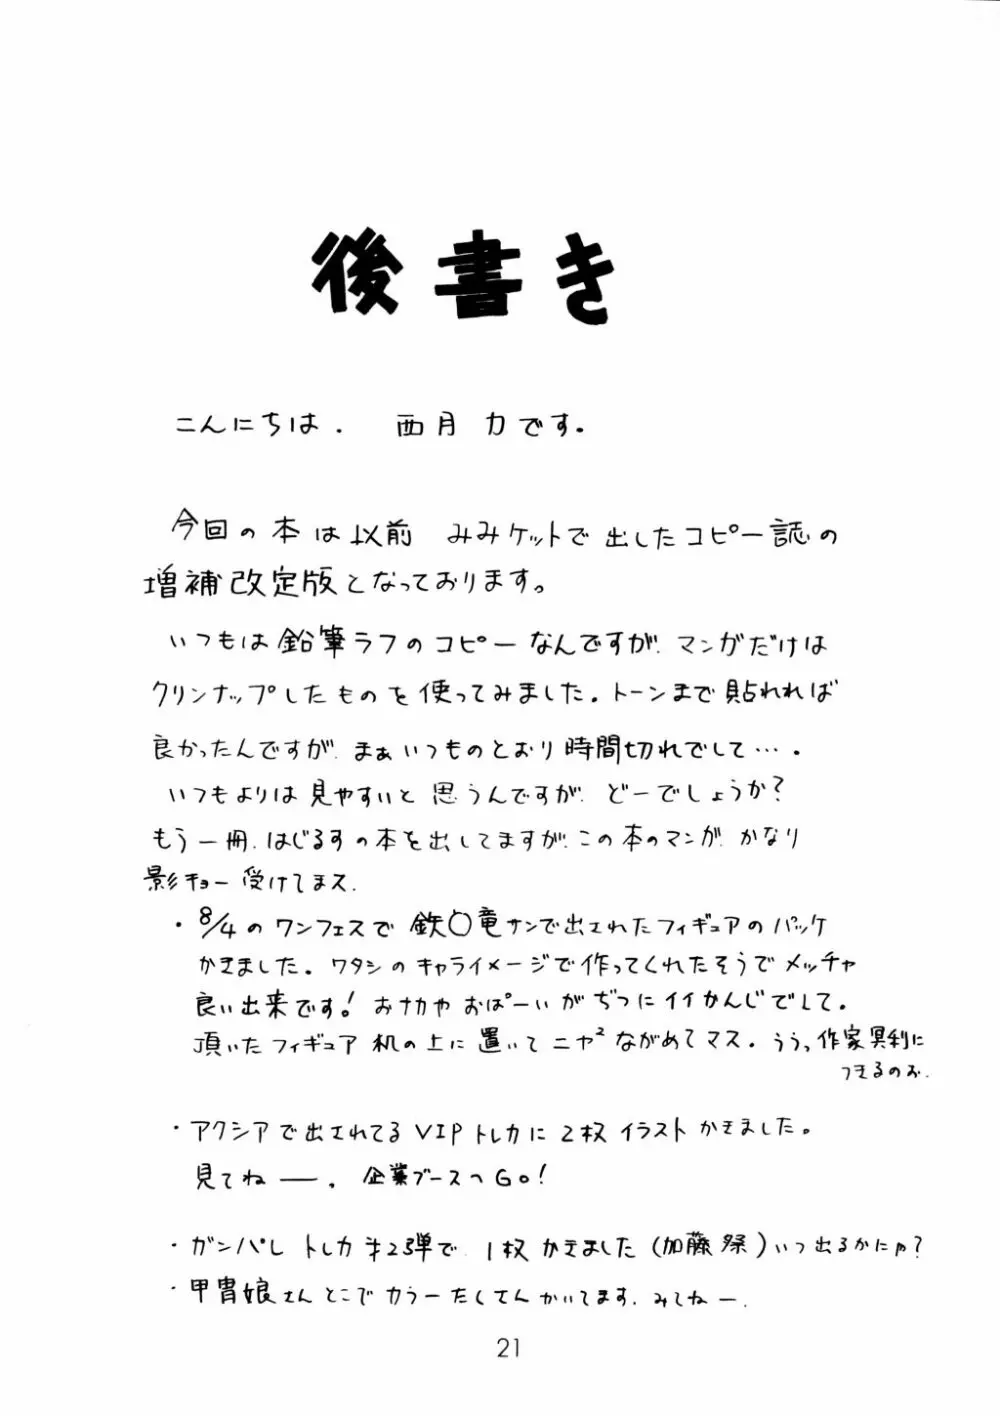 後書き
こんにちは. 西月 力です。
今回の本は以前 みみケットで出したコピー誌の
増補改定版となっております。
いつもは鉛筆ラフのコピーなんですが.マンガだけは
クリンナップしたものを使ってみました。トーンまで貼れれば
良かったんですが.まぁいつものとおり時間切れでして….
いつもよりは見やすいと思うんですが.どーでしょうか?
もう一冊.はじるすの本を出してますが.この本のマンガ.かなり
影キョー受けてまス.
・8/4のワンフェスで鉄〇竜サンで出されたフィギュアのパッケ
かきました。ワタシのキャライメージで作ってくれたそうでメッチャ
良い出来です!おナカや おぱーいがぢつにイイかんじでして。
頂いたフィギュア 机の上に置いてニヤ²ながめてマス。ううっ作家冥利に
つきるのお.
・アクシアで出されてるVIPトレカに2枚イラストかきました。
見てねー。企業ブースへGo!
・ガンパレ トレカ㐧2弾で.1枚かきました(加藤祭)いつ出るかにゃ?
・甲冑娘さんとこでカラーたくさんかいてます.みてねー.
21